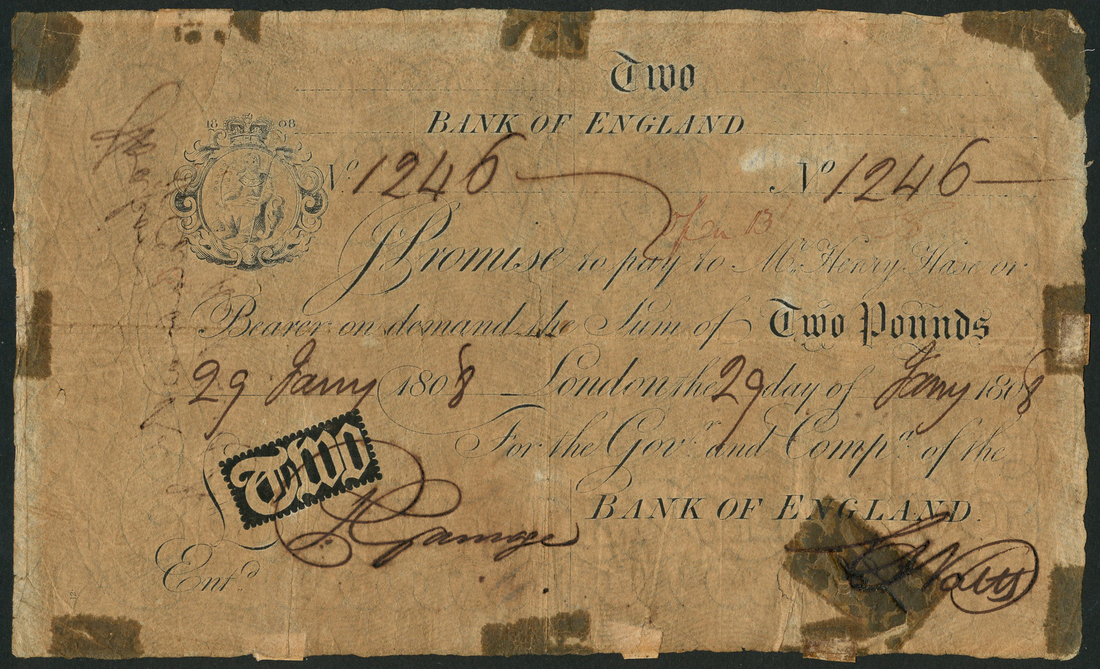 Two
BANK OF ENGLAND
18 08
No. 1246 No. 1246
I Promise to pay to Mr. Henry Hase or
Bearer on demand the Sum of Two Pounds
29 Jany 1808 London the 29 day of Jany 1808
For the Govr. and Compa. of the
BANK OF ENGLAND.
Two
Entd.